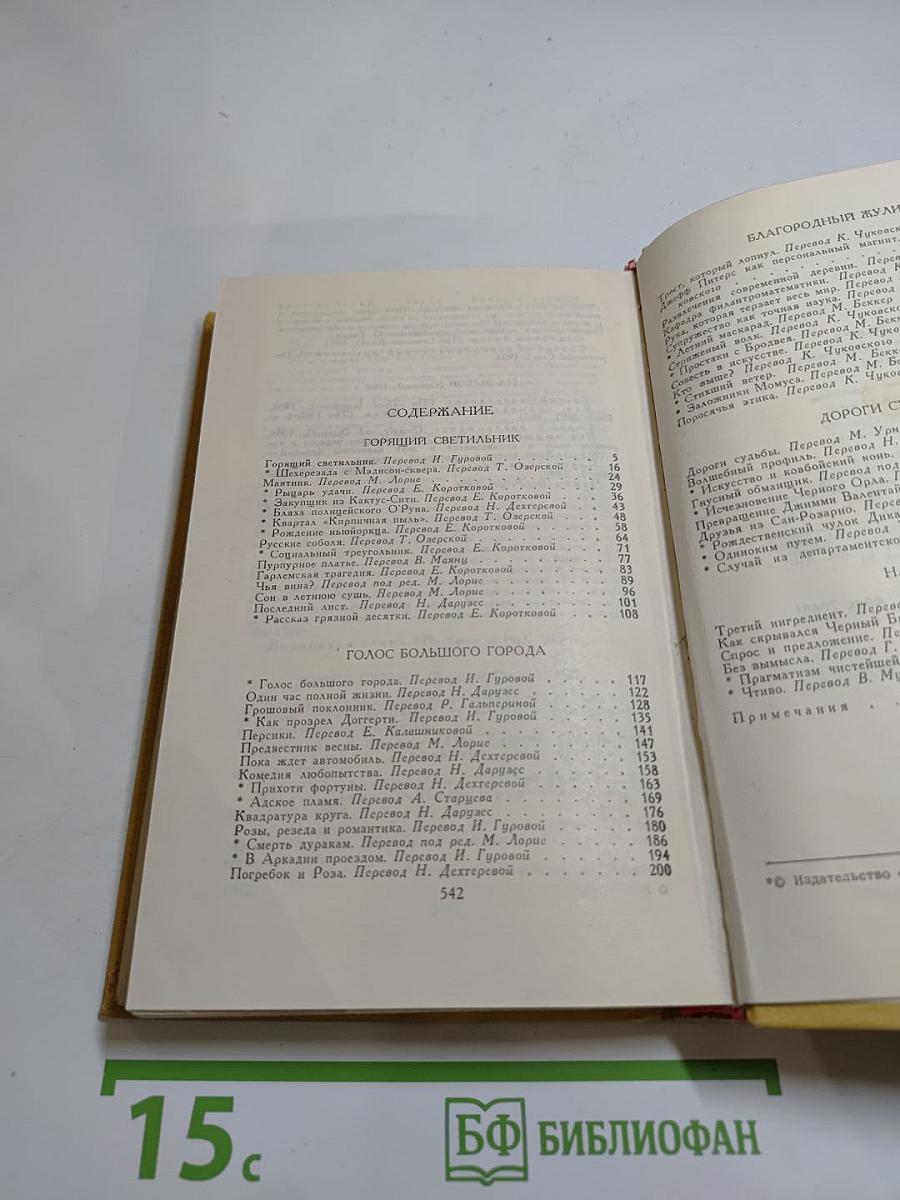 СОДЕРЖАНИЕ
ГОРЯЩИЙ СВЕТИЛЬНИК
Горящий светильник. Перевод И. Гуровой . . . . . . . . 5
* Шехерезада с Мэдисон-сквера. Перевод Т. Озерской . . 16
Маятник. Перевод М. Лорие . . . . . . . . . . 24
* Рыцарь удачи. Перевод Е. Коротковой . . . . . . . 29
* Закупщик из Кактус-Сити. Перевод Е. Коротковой . . . 36
* Бляха полицейского О'Руна. Перевод Н. Дехтеревой . . 43
* Квартал «Кирпичная пыль». Перевод Т. Озерской . . . 48
* Рождение ньюйорца. Перевод Е. Коротковой . . . . . 58
Русские соболя. Перевод Т. Озерской . . . . . . . . 64
* Социальный треугольник. Перевод Е. Коротковой . . . 71
Пурпурное платье. Перевод В. Маянц . . . . . . . . 77
Гарлемская трагедия. Перевод Е. Коротковой . . . . . 83
Чья вина? Перевод под ред. М. Лорие . . . . . . . . 89
Сон в летнюю сушь. Перевод М. Лорие . . . . . . . 96
Последний лист. Перевод Н. Дарузес . . . . . . . . 101
* Рассказ грязной десятки. Перевод Е. Коротковой . . . 108
ГОЛОС БОЛЬШОГО ГОРОДА
* Голос большого города. Перевод И. Гуровой . . . . . 117
Один час полной жизни. Перевод Н. Дарузес . . . . . . 122
Грошовый поклонник. Перевод Р. Гальпериной . . . . . 128
* Как прозрел Доггерти. Перевод И. Гуровой . . . . . 135
Персики. Перевод Е. Калашниковой . . . . . . . . 141
Предвестник весны. Перевод М. Лорие . . . . . . . 147
Пока ждет автомобиль. Перевод Н. Дехтеревой . . . . . 153
Комедия любопытства. Перевод Н. Дарузес . . . . . . 158
* Прихоти фортуны. Перевод Н. Дехтеревой . . . . . . 163
* Адское пламя. Перевод А. Старцева . . . . . . . . 169
Квадратура круга. Перевод Н. Дарузес . . . . . . . . 176
Розы, резеда и романтика. Перевод И. Гуровой . . . . . 180
* Смерть дуракам. Перевод под ред. М. Лорие . . . . . 186
* В Аркадии проездом. Перевод И. Гуровой . . . . . . 194
Погребок и Роза. Перевод Н. Дехтеревой . . . . . . . 200
542
БЛАГОРОДНЫЙ ЖУЛИ
Трест, который лопнул. Перевод К. Чуковск
Джефф Питерс как персональный магнит.
ковского . . . . . . . . .
Развлечения современной деревни. Перев
Кафедра филантроматематики. Перевод К
Рука, которая терзает весь мир. Перевод
Супружество как точная наука. Перевод
* Летний маскарад. Перевод М. Беккер
Стриженый волк. Перевод К. Чуковско
* Простаки с Бродвея. Перевод М. Бекк
Совесть в искусстве. Перевод К. Чуко
Кто выше? Перевод К. Чуковского
* Стихший ветер. Перевод М. Бекк
* Заложники Момуса. Перевод М. Бе
Поросячья этика. Перевод К. Чуков
ДОРОГИ СУ
Дороги судьбы. Перевод М. Урн
Волшебный профиль. Перевод Н.
* Искусство и ковбойский конь.
Гнусный обманщик. Перевод под
* Исчезновение Черного Орла. П
Превращение Джимми Валентай
Друзья из Сан-Розарио. Перев
* Рождественский чулок Дика
* Одиноким путем. Перевод
* Случай из департаментско
Н
Третий ингредиент. Перево
Как скрывался Черный Би
Спрос и предложение. Пе
Без вымысла. Перевод Г.
* Прагматизм чистейшей
* Чтиво. Перевод В. Му
Примечания . .
*© Издательство «
15 с
БФ БИБЛИОФАН